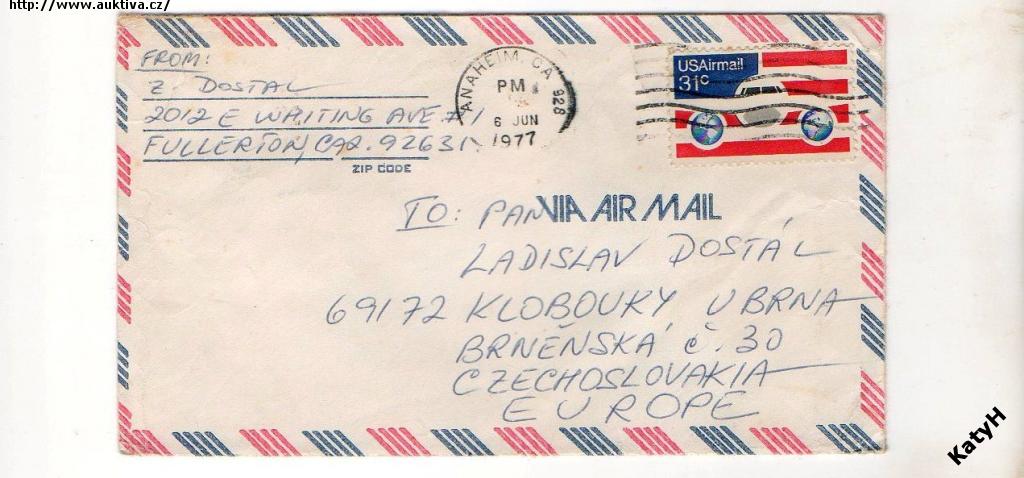 http://www.auktiva.cz/
FROM:
Z. DOSTAL
2012 E WHITING AVE #1
FULLERTON, CAL. 92631
ZIP CODE
ANAHEIM, CA 928
PM
6 JUN
1977
USAirmail
31c
VIA AIR MAIL
TO: PAN
LADISLAV DOSTÁL
69172 KLOBOUKY U BRNA
BRNĚNSKÁ č. 30
CZECHOSLOVAKIA
EUROPE
KatyH